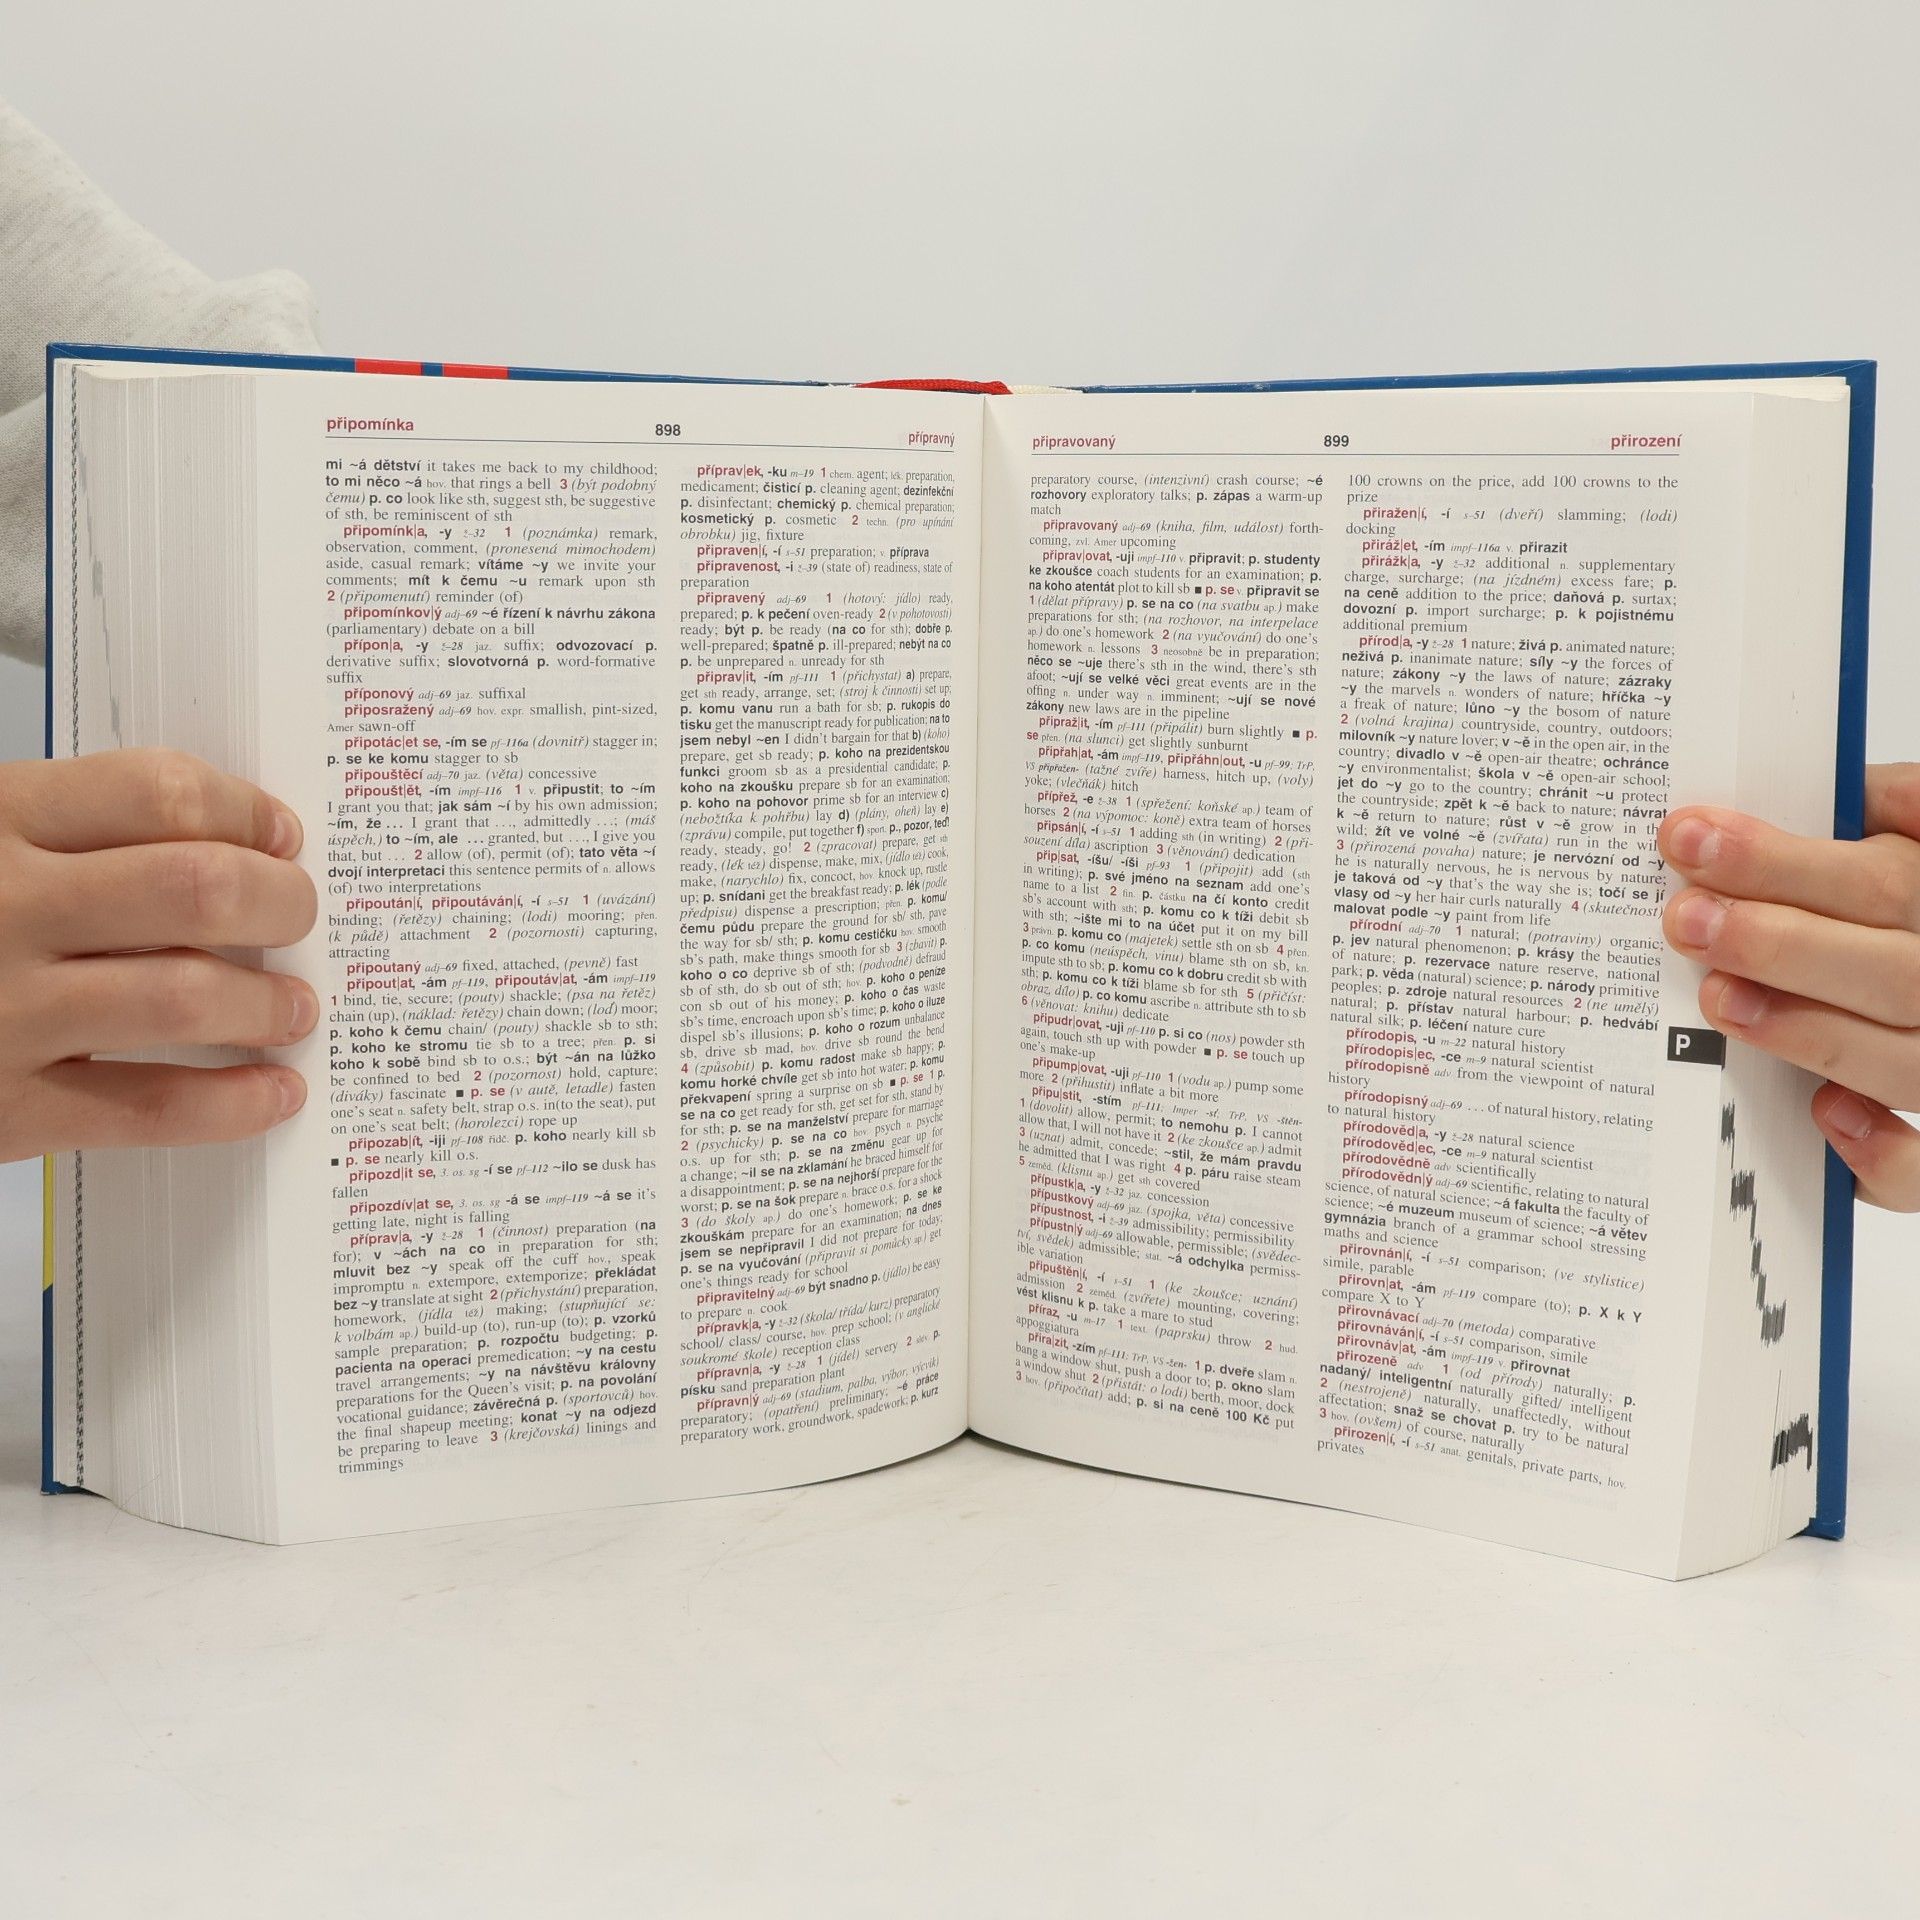 připomínka 898 přípravný
mi ~á dětství it takes me back to my childhood;
to mi něco ~á hov. that rings a bell 3 (být podobný
čemu) p. co look like sth, suggest sth, be suggestive
of sth, be reminiscent of sth
připomínk|a, -y ž–32 1 (poznámka) remark,
observation, comment, (pronesená mimochodem)
aside, casual remark; vítáme ~y we invite your
comments; mít k čemu ~u remark upon sth
2 (připomenutí) reminder (of)
připomínkov|ý adj–69 ~é řízení k návrhu zákona
(parliamentary) debate on a bill
přípon|a, -y ž–28 jaz. suffix; odvozovací p.
derivative suffix; slovotvorná p. word-formative
suffix
příponový adj–69 jaz. suffixal
připosražený adj–69 hov. expr. smallish, pint-sized,
Amer sawn-off
připotác|et se, -ím se pf–116a (dovnitř) stagger in;
p. se ke komu stagger to sb
připouštěcí adj–70 jaz. (věta) concessive
připoušt|ět, -ím impf–116 1 v. připustit; to ~ím
I grant you that; jak sám ~í by his own admission;
~ím, že … I grant that …, admittedly …; (máš
úspěch,) to ~ím, ale … granted, but …, I give you
that, but … 2 allow (of), permit (of); tato věta ~í
dvojí interpretaci this sentence permits of n. allows
(of) two interpretations
připoután|í, připoutáván|í, -í s–51 1 (uvázání)
binding; (řetězy) chaining; (lodi) mooring; přen.
(k půdě) attachment 2 (pozornosti) capturing,
attracting
připoutaný adj–69 fixed, attached, (pevně) fast
připout|at, -ám pf–119, připoutáv|at, -ám impf–119
1 bind, tie, secure; (pouty) shackle; (psa na řetěz)
chain (up), (náklad: řetězy) chain down; (loď) moor;
p. koho k čemu chain/ (pouty) shackle sb to sth;
p. koho ke stromu tie sb to a tree; přen. p. si
koho k sobě bind sb to o.s.; být ~án na lůžko
be confined to bed 2 (pozornost) hold, capture;
(diváky) fascinate ■ p. se (v autě, letadle) fasten
one's seat n. safety belt, strap o.s. in(to the seat), put
on one's seat belt; (horolezci) rope up
připozab|ít, -iji pf–108 řidč. p. koho nearly kill sb
■ p. se nearly kill o.s.
připozd|it se, 3. os. sg -í se pf–112 ~ilo se dusk has
fallen
připozdív|at se, 3. os. sg -á se impf–119 ~á se it's
getting late, night is falling
příprav|a, -y ž–28 1 (činnost) preparation (na
for); v ~ách na co in preparation for sth;
mluvit bez ~y speak off the cuff hov., speak
impromptu n. extempore, extemporize; překládat
bez ~y translate at sight 2 (přichystání) preparation,
homework, (jídla též) making; (stupňující se:
k volbám ap.) build-up (to), run-up (to); p. vzorků
sample preparation; p. rozpočtu budgeting; p.
pacienta na operaci premedication; ~y na cestu
travel arrangements; ~y na návštěvu královny
preparations for the Queen's visit; p. na povolání
vocational guidance; závěrečná p. (sportovců) hov.
the final shapeup meeting; konat ~y na odjezd
be preparing to leave 3 (krejčovská) linings and
trimmings
příprav|ek, -ku m–19 1 chem. agent; lék. preparation,
medicament; čisticí p. cleaning agent; dezinfekční
p. disinfectant; chemický p. chemical preparation;
kosmetický p. cosmetic 2 techn. (pro upínání
obrobku) jig, fixture
připraven|í, -í s–51 preparation; v. příprava
připravenost, -i ž–39 (state of) readiness, state of
preparation
připravený adj–69 1 (hotový: jídlo) ready,
prepared; p. k pečení oven-ready 2 (v pohotovosti)
ready; být p. be ready (na co for sth); dobře p.
well-prepared; špatně p. ill-prepared; nebýt na co
p. be unprepared n. unready for sth
připrav|it, -ím pf–111 1 (přichystat) a) prepare,
get sth ready, arrange, set; (stroj k činnosti) set up;
p. komu vanu run a bath for sb; p. rukopis do
tisku get the manuscript ready for publication; na to
jsem nebyl ~en I didn't bargain for that b) (koho)
prepare, get sb ready; p. koho na prezidentskou
funkci groom sb as a presidential candidate; p.
koho na zkoušku prepare sb for an examination;
p. koho na pohovor prime sb for an interview c)
(nebožtíka k pohřbu) lay d) (plány, oheň) lay e)
(zprávu) compile, put together f) sport. p., pozor, teď!
ready, steady, go! 2 (zpracovat) prepare, get sth
ready, (lék též) dispense, make, mix, (jídlo též) cook,
make, (narychlo) fix, concoct, hov. knock up, rustle
up; p. snídani get the breakfast ready; p. lék (podle
předpisu) dispense a prescription; přen. p. komu/
čemu půdu prepare the ground for sb/ sth, pave
the way for sb/ sth; p. komu cestičku hov. smooth
sb's path, make things smooth for sb 3 (zbavit) p.
koho o co deprive sb of sth; (podvodně) defraud
sb of sth, do sb out of sth; hov. p. koho o peníze
con sb out of his money; p. koho o čas waste
sb's time, encroach upon sb's time; p. koho o iluze
dispel sb's illusions; p. koho o rozum unbalance
sb, drive sb mad, hov. drive sb round the bend
4 (způsobit) p. komu radost make sb happy; p.
komu horké chvíle get sb into hot water; p. komu
překvapení spring a surprise on sb ■ p. se 1 p.
se na co get ready for sth, get set for sth, stand by
for sth; p. se na manželství prepare for marriage
2 (psychicky) p. se na co hov. psych n. psyche
o.s. up for sth; p. se na změnu gear up for
a change; ~il se na zklamání he braced himself for
a disappointment; p. se na nejhorší prepare for the
worst; p. se na šok prepare n. brace o.s. for a shock
3 (do školy ap.) do one's homework; p. se ke
zkouškám prepare for an examination; na dnes
jsem se nepřipravil I did not prepare for today;
p. se na vyučování (připravit si pomůcky ap.) get
one's things ready for school
připravitelný adj–69 být snadno p. (jídlo) be easy
to prepare n. cook
přípravk|a, -y ž–32 (škola/ třída/ kurz) preparatory
school/ class/ course, hov. prep school; (v anglické
soukromé škole) reception class
přípravn|a, -y ž–28 1 (jídel) servery 2 slév. p.
písku sand preparation plant
přípravn|ý adj–69 (stadium, palba, výbor, výcvik)
preparatory; (opatření) preliminary; ~é práce
preparatory work, groundwork, spadework; p. kurz
připravovaný 899 přirození
preparatory course, (intenzivní) crash course; ~é
rozhovory exploratory talks; p. zápas a warm-up
match
připravovaný adj–69 (kniha, film, událost) forth-
coming, zvl. Amer upcoming
připrav|ovat, -uji impf–110 v. připravit; p. studenty
ke zkoušce coach students for an examination; p.
na koho atentát plot to kill sb ■ p. se v. připravit se
1 (dělat přípravy) p. se na co (na svatbu ap.) make
preparations for sth; (na rozhovor, na interpelace
ap.) do one's homework 2 (na vyučování) do one's
homework n. lessons 3 neosobně be in preparation;
něco se ~uje there's sth in the wind, there's sth
afoot; ~ují se velké věci great events are in the
offing n. under way n. imminent; ~ují se nové
zákony new laws are in the pipeline
připraž|it, -ím pf–111 (připálit) burn slightly ■ p.
se přen. (na slunci) get slightly sunburnt
připřah|at, -ám impf–119, připřáhn|out, -u pf–99; TrP,
VS připřažen- (tažné zvíře) harness, hitch up, (voly)
yoke; (vlečňák) hitch
přípřež, -e ž–38 1 (spřežení: koňské ap.) team of
horses 2 (na výpomoc: koně) extra team of horses
připsán|í, -í s–51 1 adding sth (in writing) 2 (při-
souzení díla) ascription 3 (věnování) dedication
přip|sat, -íšu/ -íši pf–93 1 (připojit) add (sth
in writing); p. své jméno na seznam add one's
name to a list 2 fin. p. částku na čí konto credit
sb's account with sth; p. komu co k tíži debit sb
with sth; ~ište mi to na účet put it on my bill
3 právn. p. komu co (majetek) settle sth on sb 4 přen.
p. co komu (neúspěch, vinu) blame sth on sb, kn.
impute sth to sb; p. komu co k dobru credit sb with
sth; p. komu co k tíži blame sb for sth 5 (přičíst:
obraz, dílo) p. co komu ascribe n. attribute sth to sb
6 (věnovat: knihu) dedicate
připudr|ovat, -uji pf–110 p. si co (nos) powder sth
again, touch sth up with powder ■ p. se touch up
one's make-up
připump|ovat, -uji pf–110 1 (vodu ap.) pump some
more 2 (přihustit) inflate a bit more
připu|stit, -stím pf–111; Imper -sť; TrP, VS -štěn-
1 (dovolit) allow, permit; to nemohu p. I cannot
allow that, I will not have it 2 (ke zkoušce ap.) admit
3 (uznat) admit, concede; ~stil, že mám pravdu
he admitted that I was right 4 p. páru raise steam
5 zeměd. (klisnu ap.) get sth covered
přípustk|a, -y ž–32 jaz. concession
přípustkový adj–69 jaz. (spojka, věta) concessive
přípustnost, -i ž–39 admissibility; permissibility
přípustn|ý adj–69 allowable, permissible; (svědec-
tví, svědek) admissible; stat. ~á odchylka permiss-
ible variation
připuštěn|í, -í s–51 1 (ke zkoušce; uznání)
admission 2 zeměd. (zvířete) mounting, covering;
vést klisnu k p. take a mare to stud
příraz, -u m–17 1 text. (paprsku) throw 2 hud.
appoggiatura
přira|zit, -zím pf–111; TrP, VS -žen- 1 p. dveře slam n.
bang a window shut, push a door to; p. okno slam
a window shut 2 (přistát: o lodi) berth, moor, dock
3 hov. (připočítat) add; p. si na ceně 100 Kč put
100 crowns on the price, add 100 crowns to the
prize
přiražen|í, -í s–51 (dveří) slamming; (lodi)
docking
přiráž|et, -ím impf–116a v. přirazit
přirážk|a, -y ž–32 additional n. supplementary
charge, surcharge; (na jízdném) excess fare; p.
na ceně addition to the price; daňová p. surtax;
dovozní p. import surcharge; p. k pojistnému
additional premium
přírod|a, -y ž–28 1 nature; živá p. animated nature;
neživá p. inanimate nature; síly ~y the forces of
nature; zákony ~y the laws of nature; zázraky
~y the marvels n. wonders of nature; hříčka ~y
a freak of nature; lůno ~y the bosom of nature
2 (volná krajina) countryside, country, outdoors;
milovník ~y nature lover; v ~ě in the open air, in the
country; divadlo v ~ě open-air theatre; ochránce
~y environmentalist; škola v ~ě open-air school;
jet do ~y go to the country; chránit ~u protect
the countryside; zpět k ~ě back to nature; návrat
k ~ě return to nature; růst v ~ě grow in th
wild; žít ve volné ~ě (zvířata) run in the wil
3 (přirozená povaha) nature; je nervózní od ~y
he is naturally nervous, he is nervous by nature;
je taková od ~y that's the way she is; točí se jí
vlasy od ~y her hair curls naturally 4 (skutečnost)
malovat podle ~y paint from life
přírodní adj–70 1 natural; (potraviny) organic;
p. jev natural phenomenon; p. krásy the beauties
of nature; p. rezervace nature reserve, national
park; p. věda (natural) science; p. národy primitive
peoples; p. zdroje natural resources 2 (ne umělý)
natural; p. přístav natural harbour; p. hedvábí
natural silk; p. léčení nature cure
přírodopis, -u m–22 natural history
přírodopis|ec, -ce m–9 natural scientist
přírodopisně adv from the viewpoint of natural
history
přírodopisný adj–69 … of natural history, relating
to natural history
přírodověd|a, -y ž–28 natural science
přírodověd|ec, -ce m–9 natural scientist
přírodovědně adv scientifically
přírodovědn|ý adj–69 scientific, relating to natural
science, of natural science; ~á fakulta the faculty of
science; ~é muzeum museum of science; ~á větev
gymnázia branch of a grammar school stressing
maths and science
přirovnán|í, -í s–51 comparison; (ve stylistice)
simile, parable
přirovn|at, -ám pf–119 compare (to); p. X k Y
compare X to Y
přirovnávací adj–70 (metoda) comparative
přirovnáván|í, -í s–51 comparison, simile
přirovnáv|at, -ám impf–119 v. přirovnat
přirozeně adv 1 (od přírody) naturally; p.
nadaný/ inteligentní naturally gifted/ intelligent
2 (nestrojeně) naturally, unaffectedly, without
affectation; snaž se chovat p. try to be natural
3 hov. (ovšem) of course, naturally
přirozen|í, -í s–51 anat. genitals, private parts, hov.
privates
P